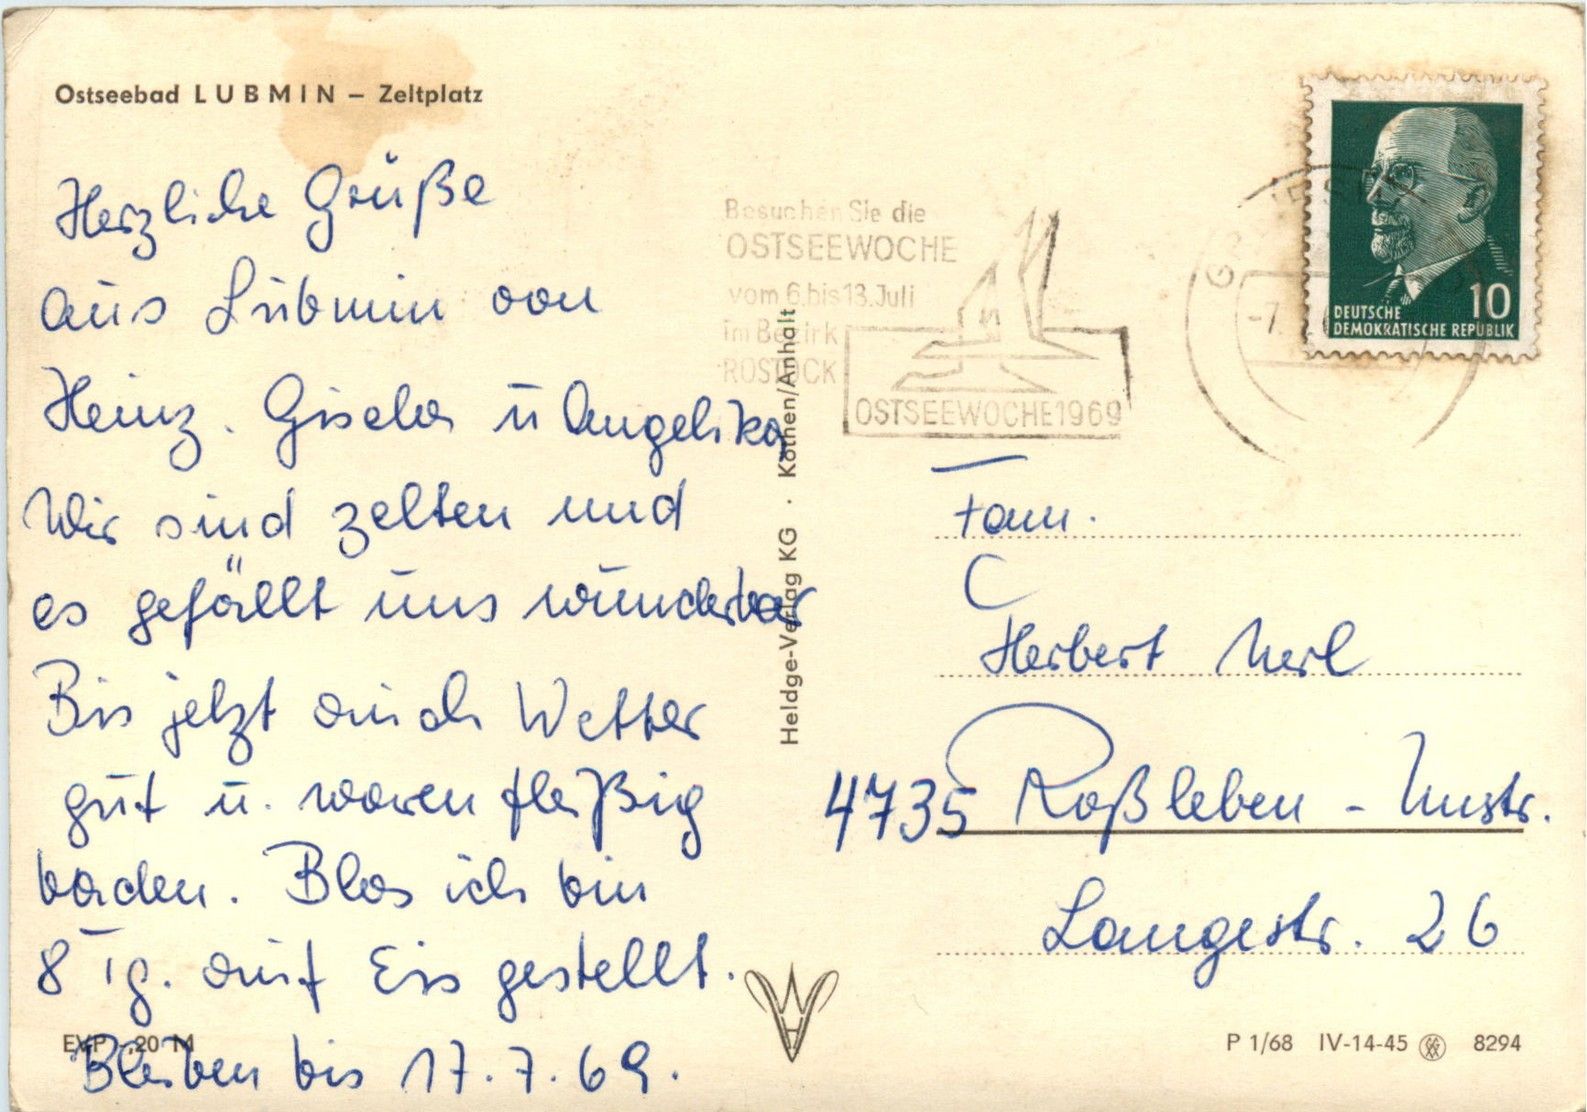 Ostseebad LUBMIN – Zeltplatz
Herzliche Grüße
aus Lubmin von
Heinz. Gisela u Angelika
Wir sind zelten und
es gefällt uns wunderbar
Bis jetzt auch Wetter
gut u. waren fleißig
baden. Blos ich bin
8 Tg. auf Eis gestellt.
Bleiben bis 17.7.69.
EVP -,20 M
Besuchen Sie die
OSTSEEWOCHE
vom 6.bis 13. Juli
im Bezirk
ROSTOCK
OSTSEEWOCHE 1969
10
DEUTSCHE
DEMOKRATISCHE REPUBLIK
Heldge-Verlag KG · Köthen/Anhalt
Fam.
Herbert
4735 Roßleben - Unstr.
Langestr. 26
P 1/68 IV-14-45 8294